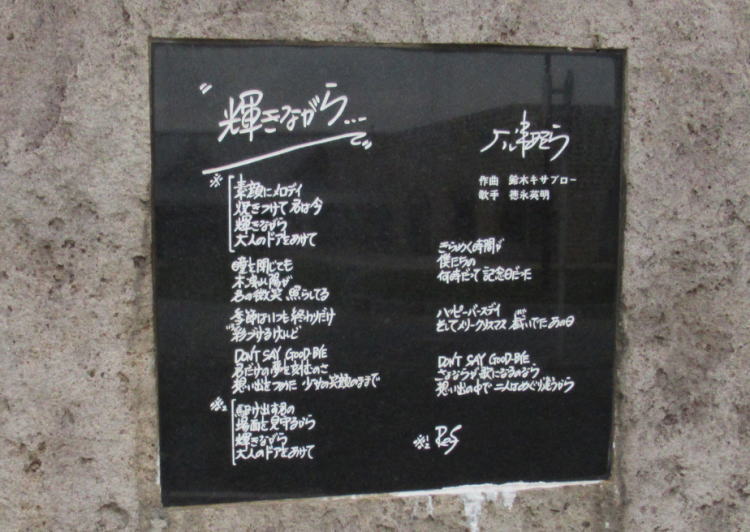 〝輝きながら…〟
大津あきら
作曲 鈴木キサブロー
歌手 徳永英明
※1
素顔にメロディ
焼きつけて 君は今
輝きながら
大人のドアをあけて
瞳を閉じても
木洩れ陽が
君の微笑 照らしてる
季節はいつも 終わりだけ
彩づけるけれど
DON'T SAY GOOD-BYE
君だけの夢を刻むのさ
想い出をつめた 少女の笑顔のままで
※2
駆け出す君の
場面を見守るから
輝きながら
大人のドアをあけて
きらめく時間が
僕たちの
何時だって 記念日だった
ハッピーバースデイ
そしてメリークリスマス 囁いてた あの日
DON'T SAY GOOD-BYE
さよならが 歌になるのなら
想い出の中で 二人はめぐり逢うから
※1
※2